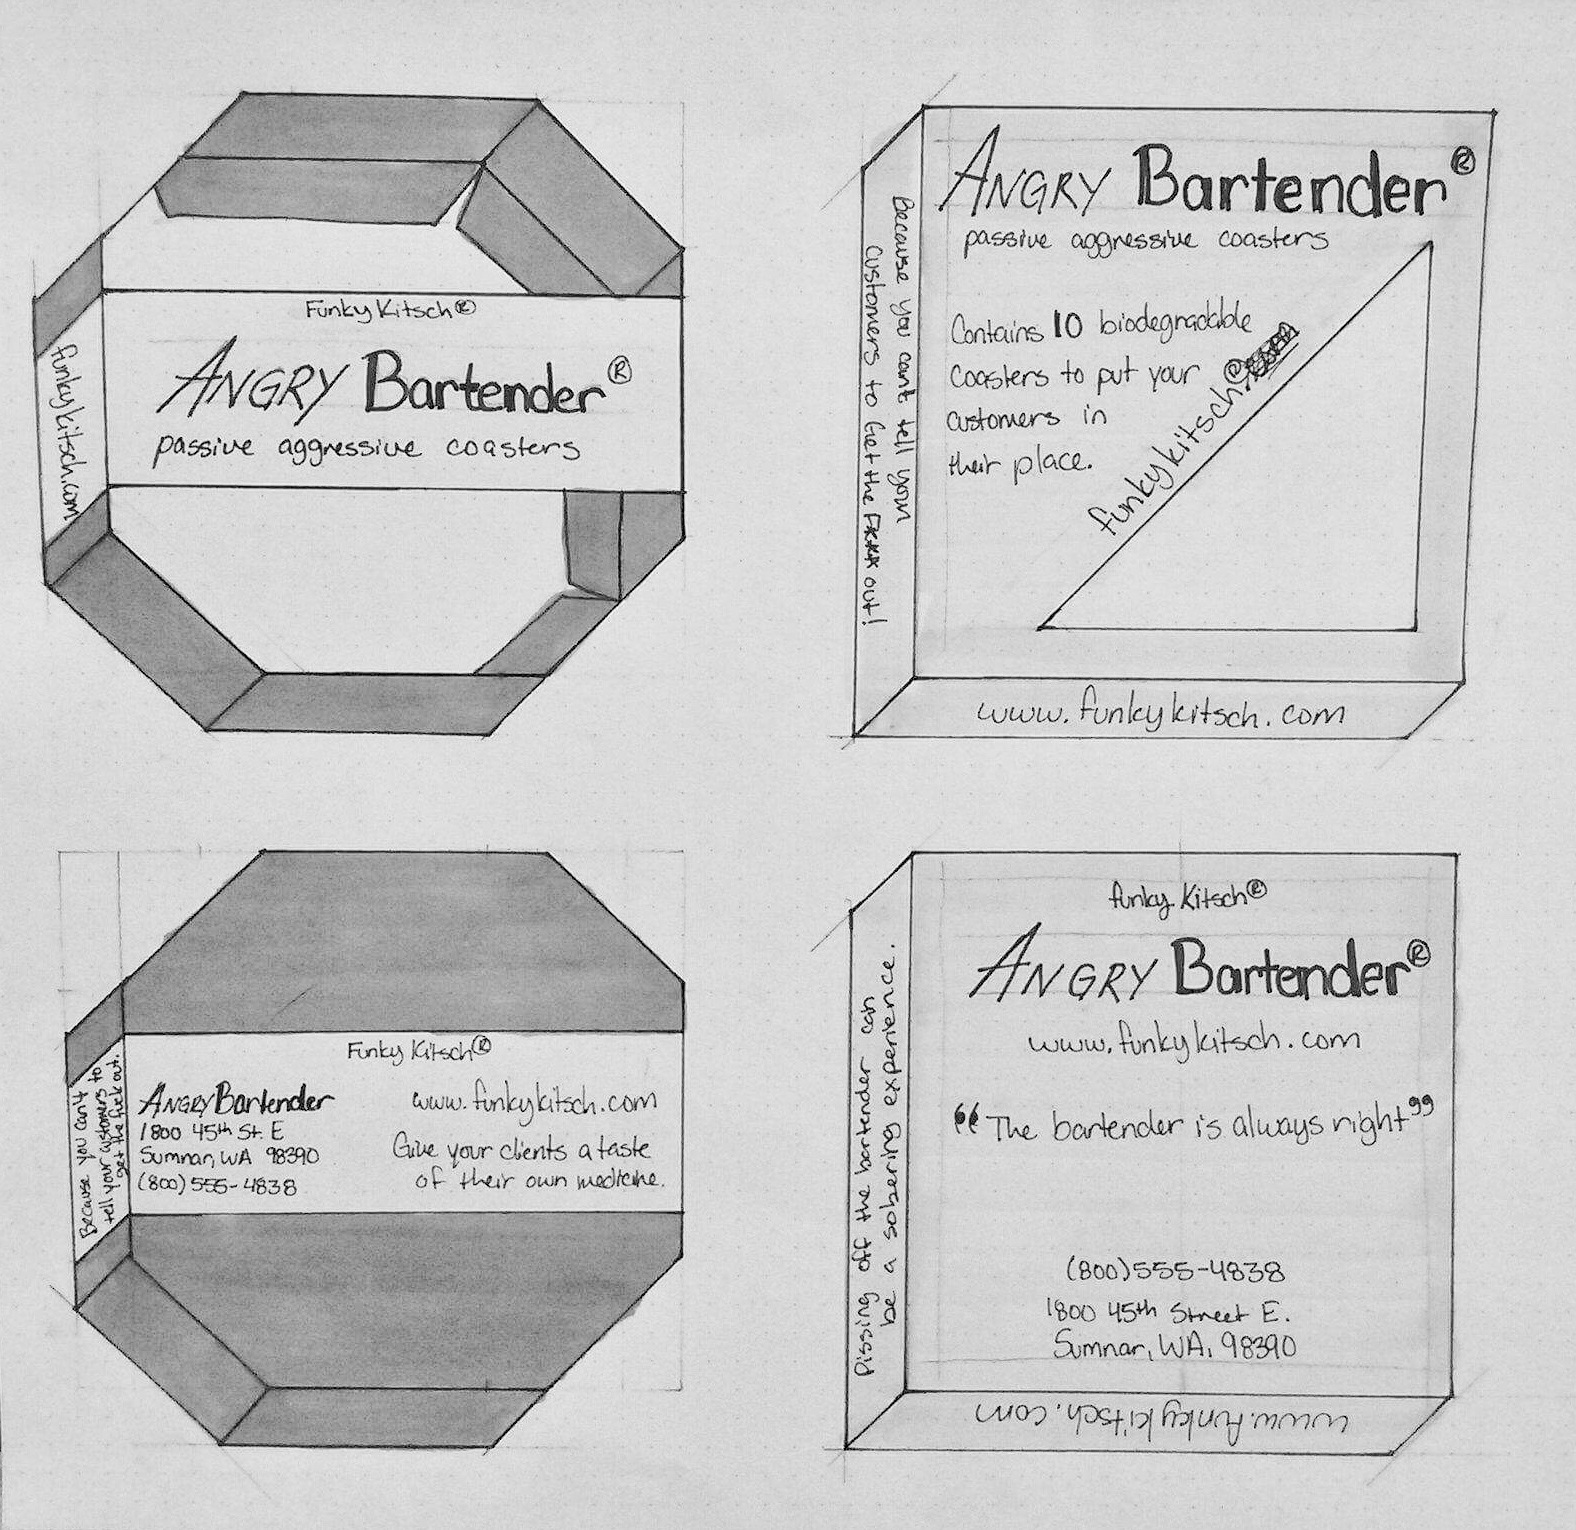 Funky Kitsch®
ANGRY Bartender®
passive aggressive coasters
funkykitsch.com
ANGRY Bartender®
passive aggressive coasters
Contains 10 biodegradable
coasters to put your
customers in
their place.
funkykitsch®
Because you can't tell your
customers to Get the F**** out!
www.funkykitsch.com
Funky Kitsch®
ANGRY Bartender
1800 45th St. E
Sumnar, WA 98390
(800) 555-4838
www.funkykitsch.com
Give your clients a taste
of their own medicine.
Because you can't
tell your customers to
get the fuck out.
funky Kitsch®
ANGRY Bartender®
www.funkykitsch.com
“The bartender is always right”
(800) 555-4838
1800 45th Street E.
Sumnar, WA, 98390
Pissing off the bartender can
be a sobering experience.
www.funkykitsch.com